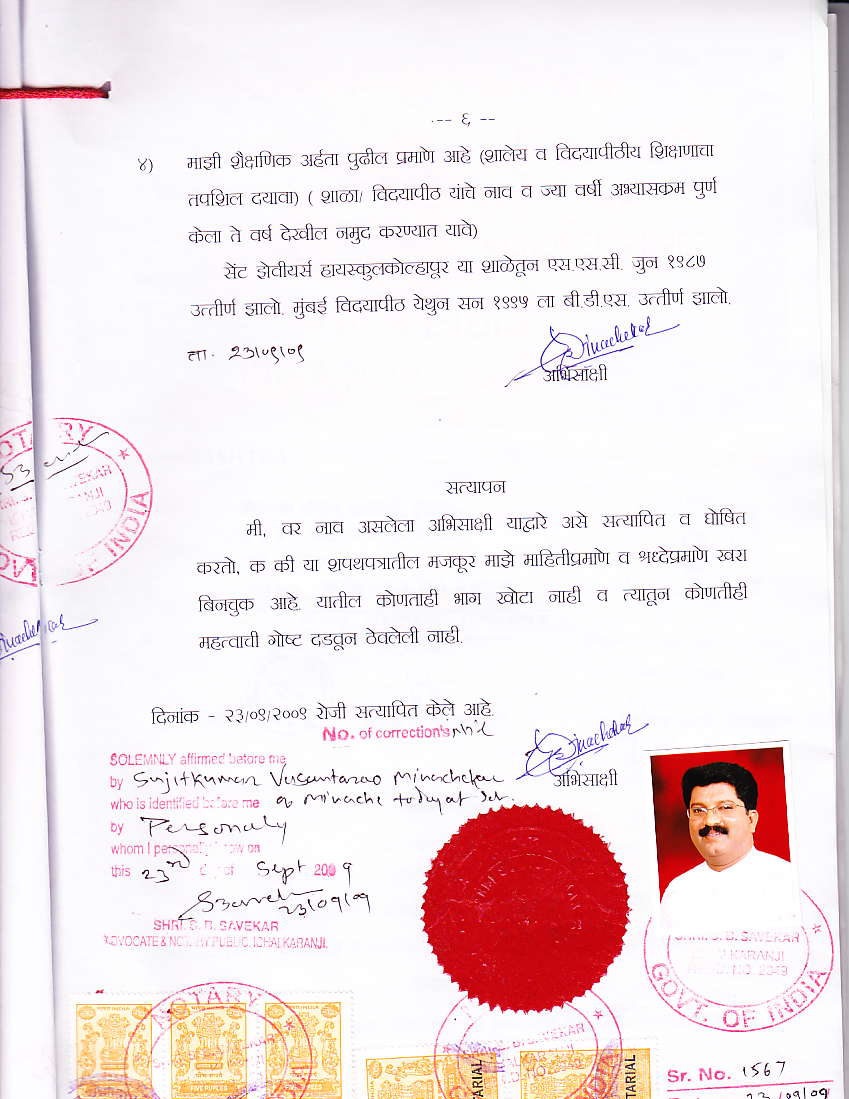 -- ६ --
४) माझी शैक्षणिक अर्हता पुढील प्रमाणे आहे (शालेय व विदयापीठीय शिक्षणाचा
तपशिल दयावा) ( शाळा/ विदयापीठ यांचे नाव व ज्या वर्षी अभ्यासक्रम पुर्ण
केला ते वर्ष देखील नमुद करण्यात यावे)
सेंट झेवीयर्स हायस्कुलकोल्हापूर या शाळेतून एस.एस.सी. जुन १९८७
उत्तीर्ण झालो. मुंबई विदयापीठ येथुन सन १९९५ ला बी.डी.एस. उत्तीर्ण झालो.
ता. २३/०९/०९
अभिसाक्षी
NOTARY
INDIA
सत्यापन
मी, वर नाव असलेला अभिसाक्षी याद्वारे असे सत्यापित व घोषित
करतो, क की या शपथपत्रातील मजकूर माझे माहितीप्रमाणे व श्रध्देप्रमाणे खरा
बिनचुक आहे. यातील कोणताही भाग खोटा नाही व त्यातून कोणतीही
महत्वाची गोष्ट दडवून ठेवलेली नाही.
दिनांक - २३/०९/२००९ रोजी सत्यापित केले आहे.
No. of correction's Nil
SOLEMNLY affirmed before me
by Sujitkumar Vasantrao Minachekar
अभिसाक्षी
who is identified before me
by Personaly
whom I personally know on
this 23rd day of Sept 2009
23/09/09
SHRI. S. B. SAVEKAR
ADVOCATE & NOTARY PUBLIC, ICHALKARANJI.
SHRI. S. B. SAVEKAR
KARANJI
GOVT. OF INDIA
NOTARY
FIVE RUPEES
Sr. No. 1567
23/09/09